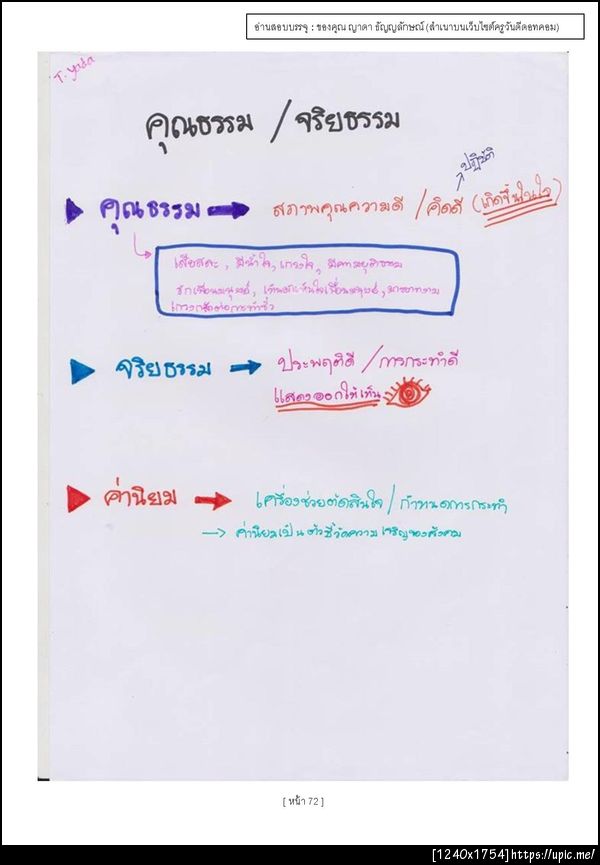 อ่านสอบบรรจุ : ของคุณ ญาดา ธัญญลักษณ์ (สำเนาบนเว็บไซต์ครูวันดีดอทคอม)
T. Yada
คุณธรรม / จริยธรรม
ปฏิบัติ
คุณธรรม → สภาพคุณความดี / คิดดี (เกิดขึ้นในใจ)
เสียสละ, มีน้ำใจ, เกรงใจ, มีความยุติธรรม
รักเพื่อนมนุษย์, เห็นอกเห็นใจเพื่อนมนุษย์, มารยาทงาม
เกรงกลัวต่อการทำชั่ว
จริยธรรม → ประพฤติดี / การกระทำดี
แสดงออกให้เห็น
ค่านิยม → เครื่องช่วยตัดสินใจ / กำหนดการกระทำ
→ ค่านิยมเป็นตัวชี้วัดความเจริญของสังคม
[ หน้า 72 ]
[1240x1754]https://upic.me/